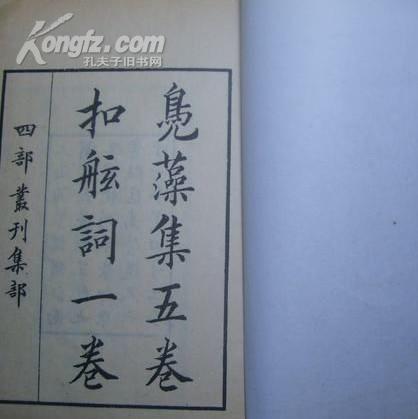 Kongfz.com
孔夫子旧书网
鳧藻集五卷
扣舷詞一卷
四部叢刊集部